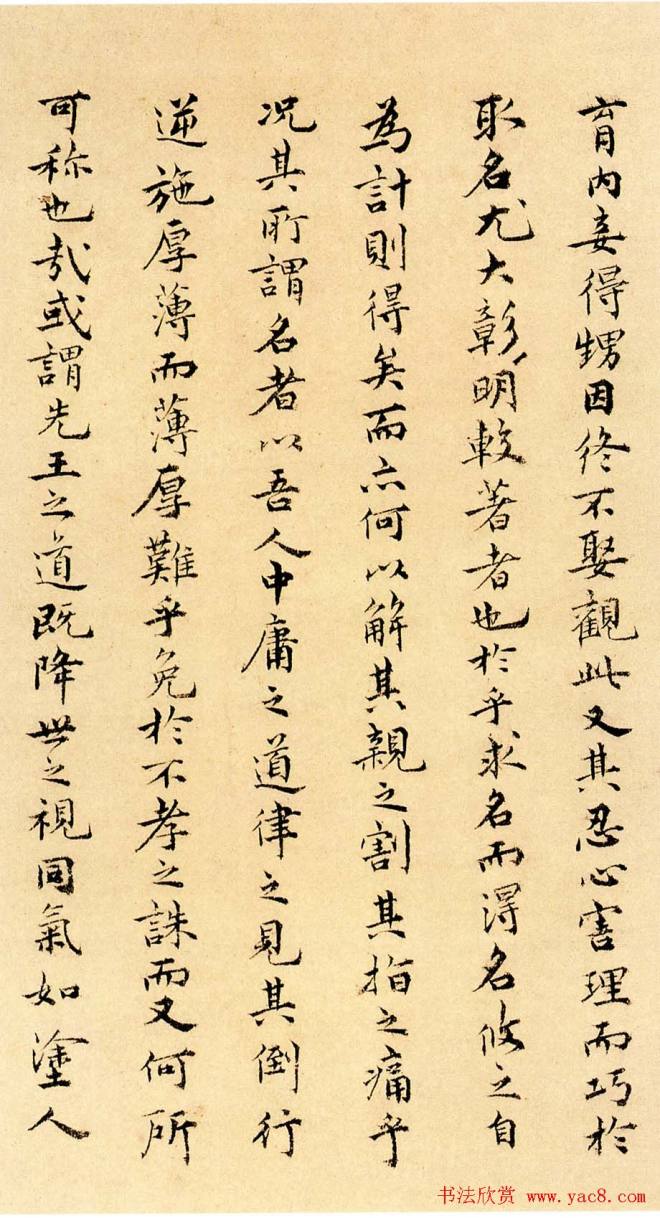 育內妾得甥因終不娶觀此又其忍心害理而巧於
取名尤大彰明較著者也於乎求名而得名攸之自
為計則得矣而亦何以解其親之割其指之痛乎
况其所謂名者以吾人中庸之道律之見其倒行
逆施厚薄而薄厚難乎免於不孝之誅而又何所
可称也哉或謂先王之道既降世之視同氣如塗人
书法欣赏 www.yac8.com